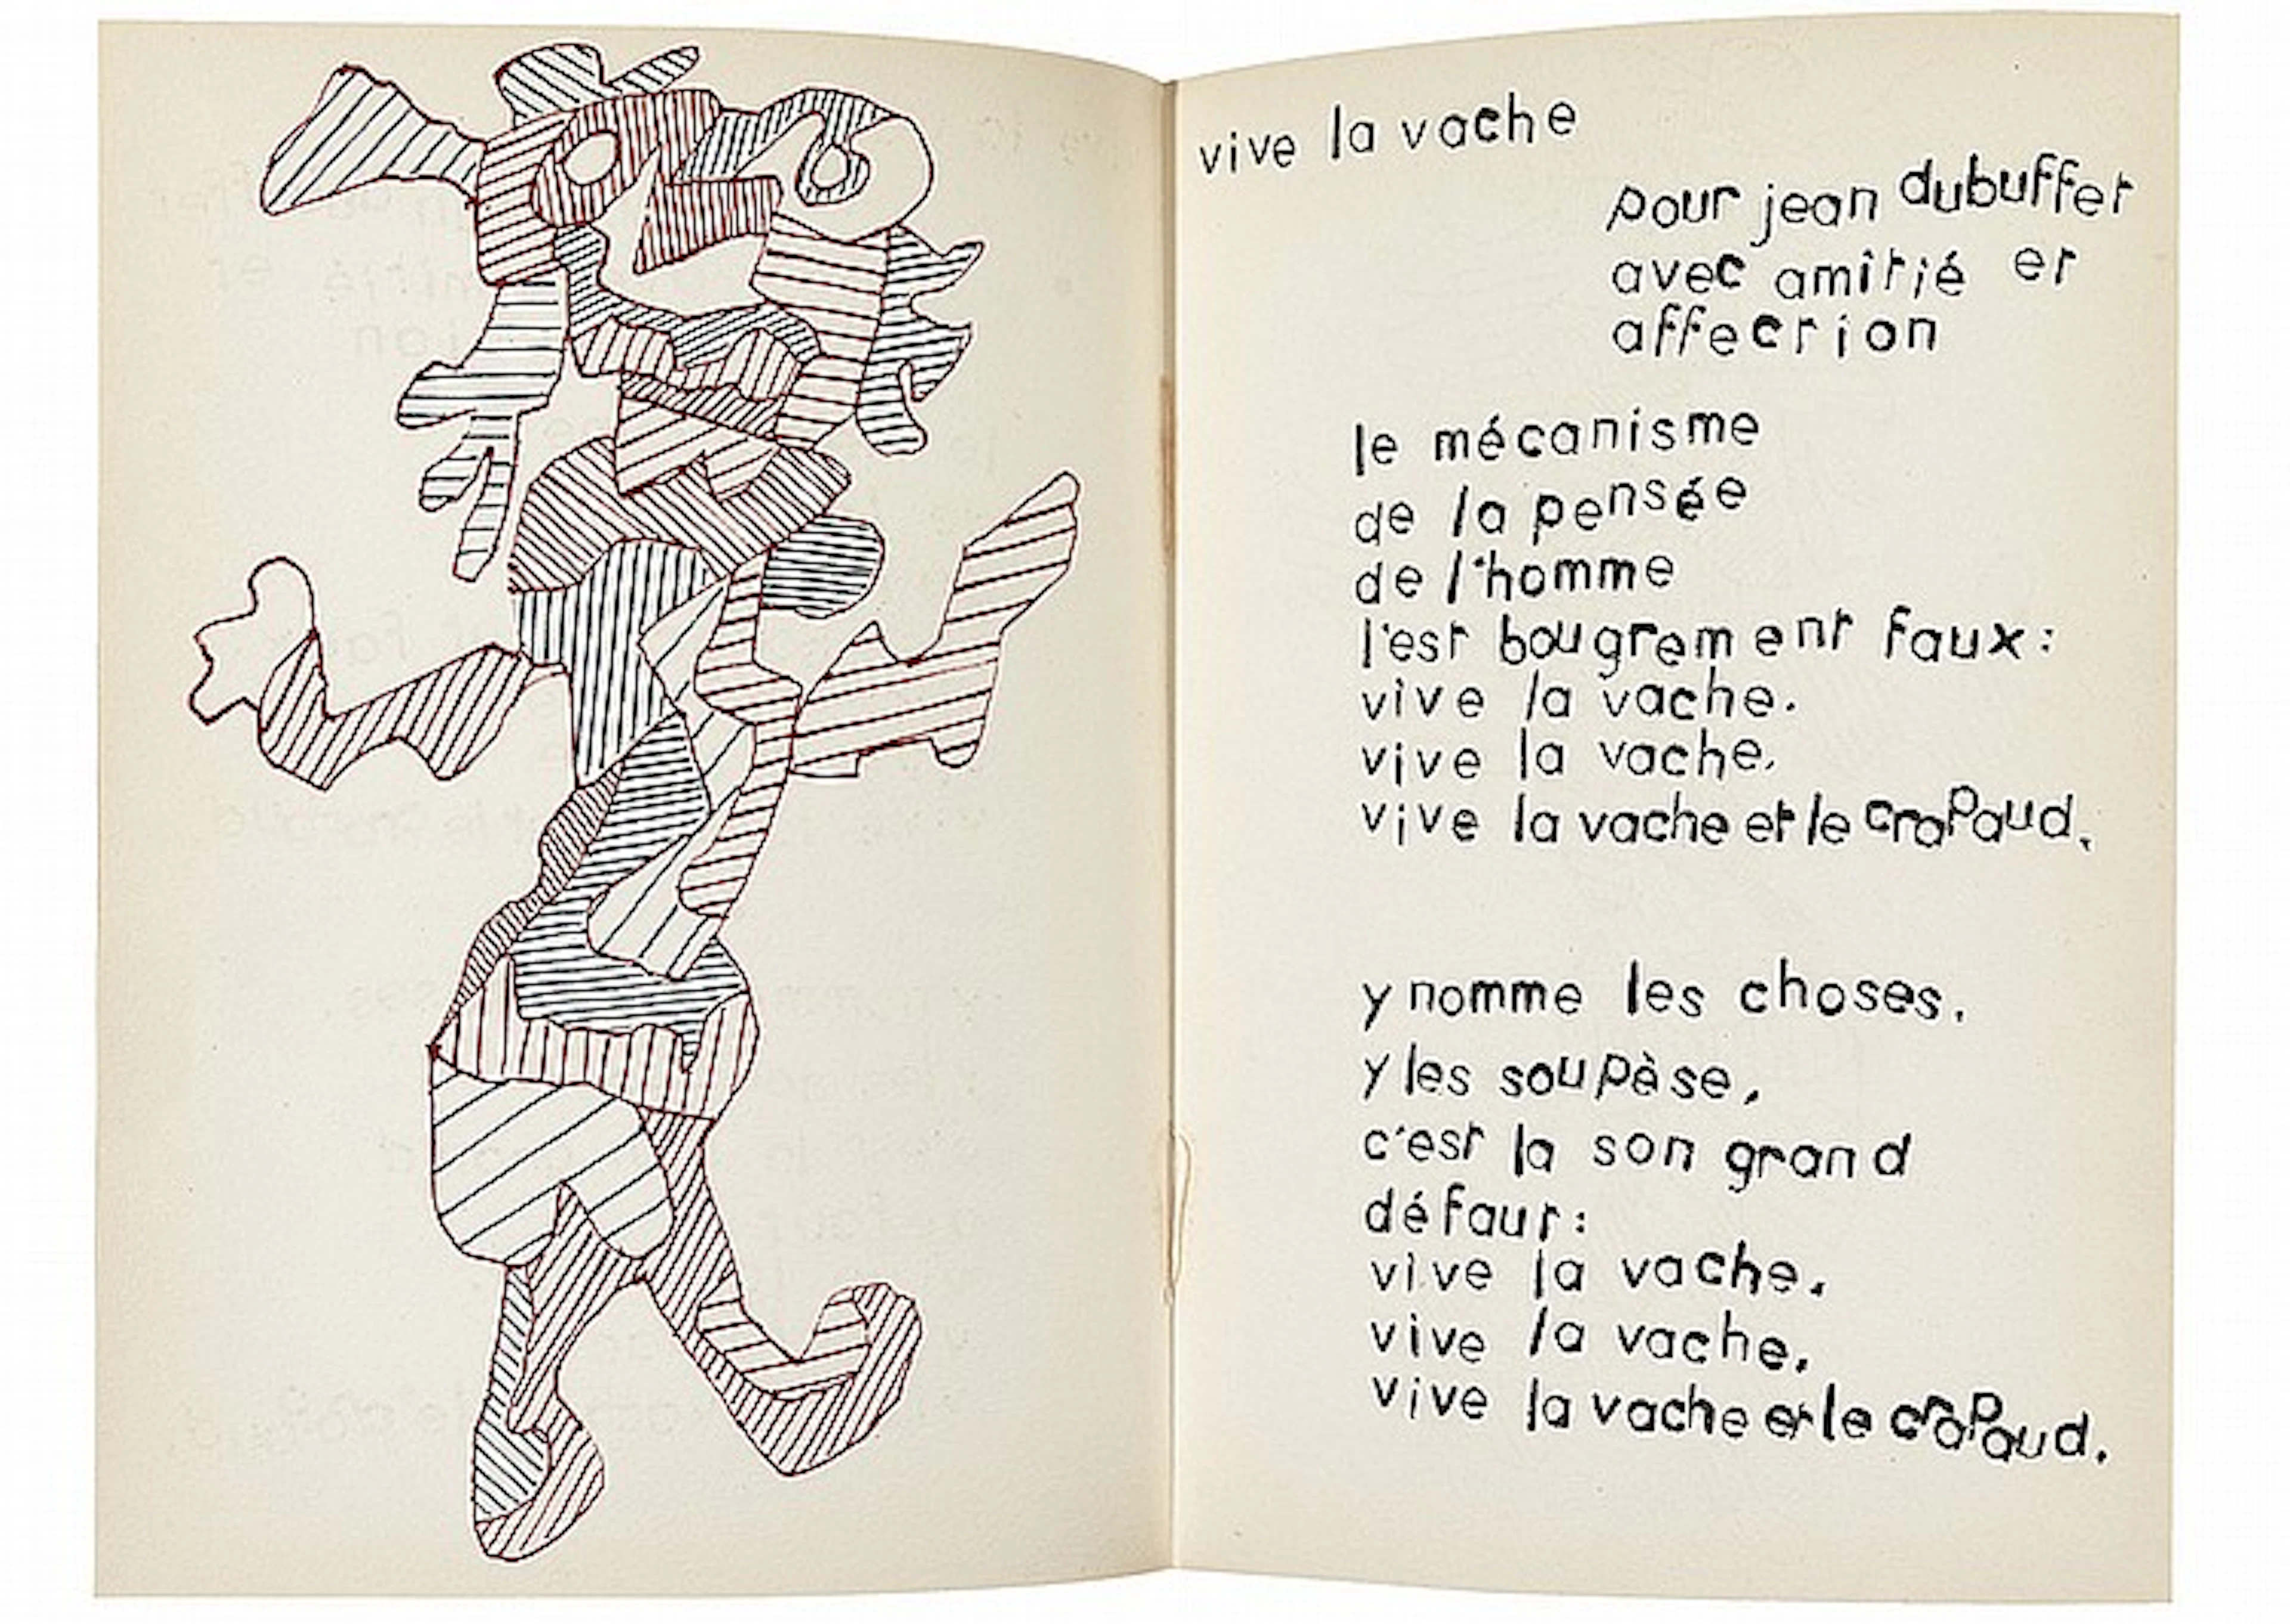 vive la vache
pour jean dubuffet
avec amitié et
affection
le mécanisme
de la pensée
de l'homme
l'est bougrement faux:
vive la vache.
vive la vache.
vive la vache et le crapaud.
y nomme les choses.
y les soupèse,
c'est la son grand
défaut:
vive la vache.
vive la vache.
vive la vache et le crapaud.